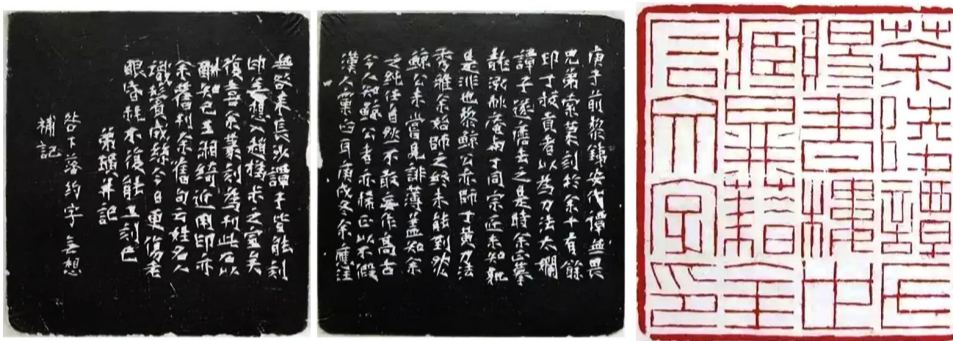 庚子前黎鐵安代譚無畏
兄弟索篆刻於余十有餘
印丁拔貢者以為刀法太爛
譚子遂磨去之是時余正摹
龍泓秋庵與丁同宗匠未知孰
是非也黎鯨公亦師丁黃刀法
秀雅余始師之終未能到然
鯨公未嘗見誹薄蓋知余
之純任自然不敢妄作高古
今人知鯨公者亦稱正以未假
漢人窠臼耳庚戌冬余應汪
無咎來長沙譚子皆能刻
印想入趙撝叔之室矣
復喜余篆刻為刊此石以
酬知己王湘綺近用印亦
余舊刊余舊句云姓名人
識鬢成絲今日更傷老
眼昏然不復能工刻已
弟璜并記
咎下落約字無想
補記
茶陵譚氏
賜書樓世
藏圖籍金
石文字印